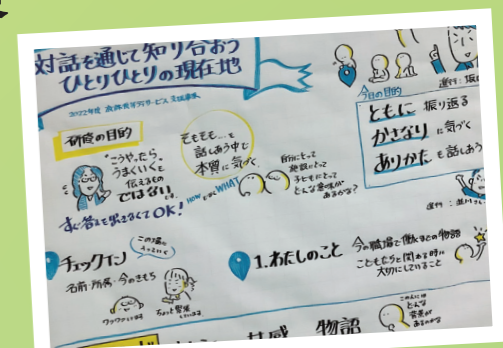 対話を通じて知り合おう
ひとりひとりの現在地
2022年度
研修の目的
"こうやったら
うまくいく"を
伝えるもの
ではないです。
すぐ答えを出さなくてOK!
そもそも…を
話しあう中で
本質に気づく
HOW WHAT
自分にとって
施設にとって
子どもにとって
どんな意味が
あるかな?
今日の目的
ともに 振り返る
かさなり に気づく
ありかた を話しあう
進行:
チェックイン
この場に
名前・所属・今のきもち
ワクワクしています
ちょっと緊張
しているな
1.わたしのこと
今の職場で働くまでの物語
こどもたちと関わる時に
大切にしていること
この人には
どんな
背景が
あるのかな
共感 物語